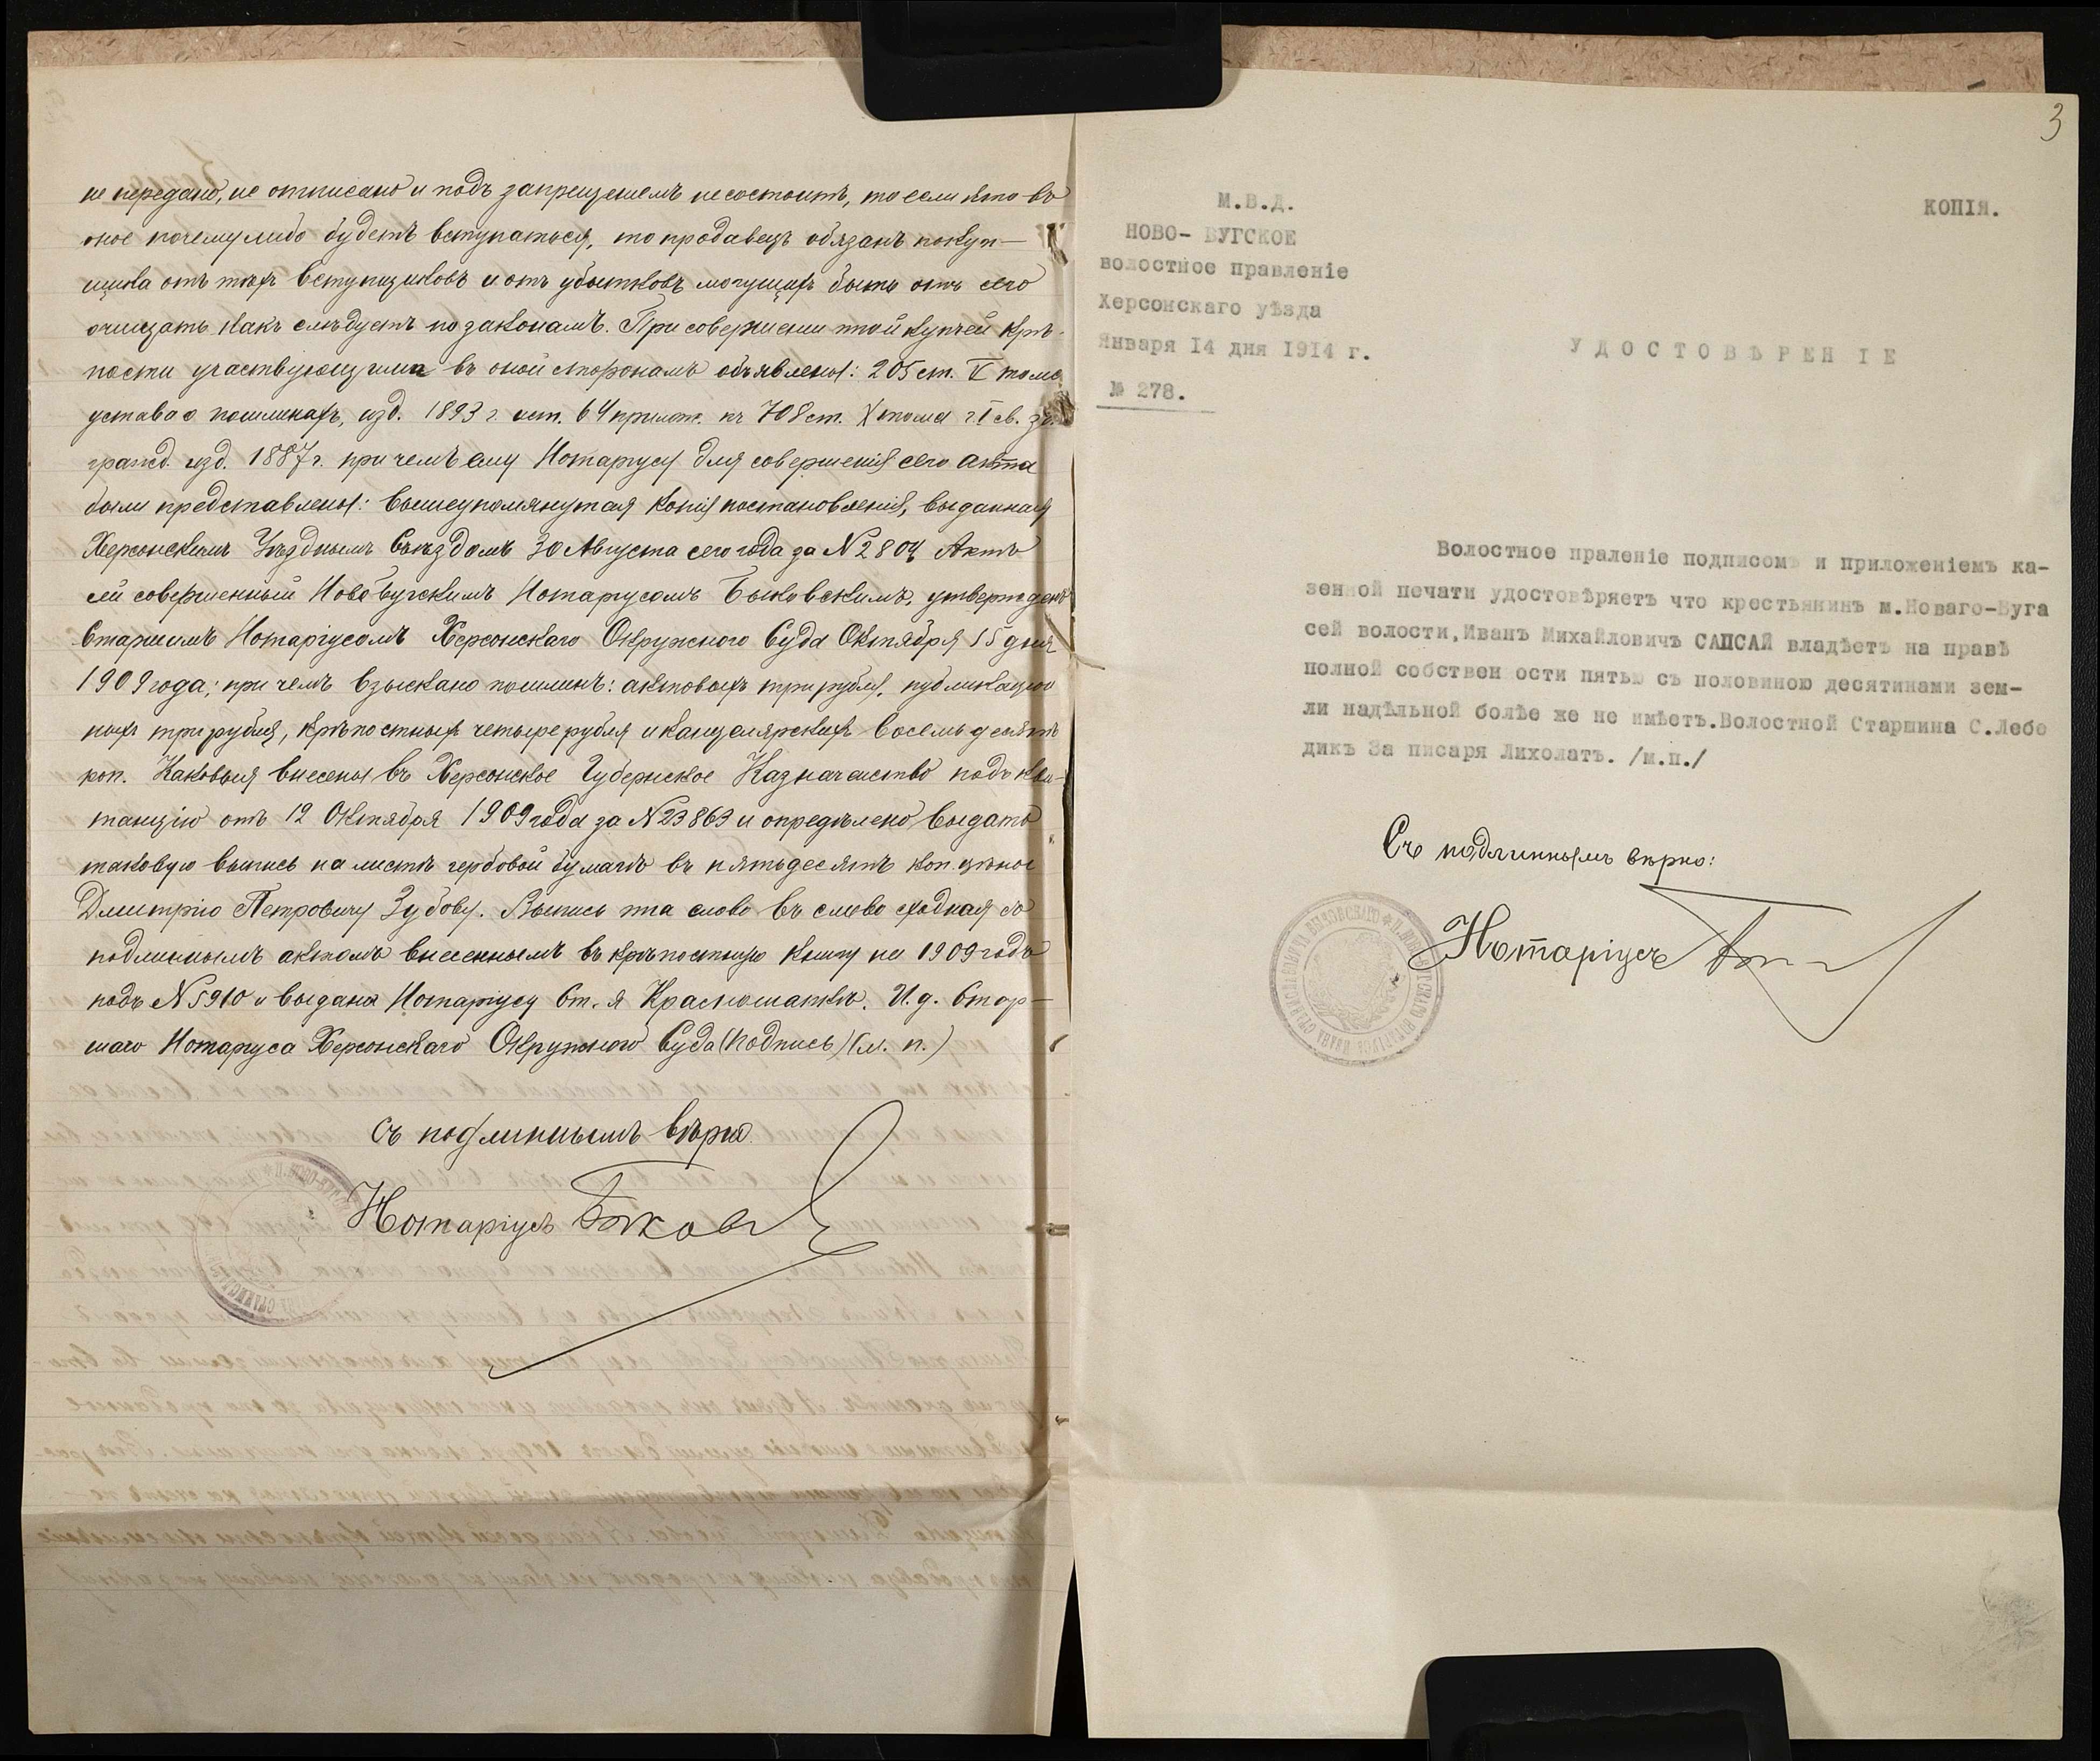 не передано, не отписано и подъ запрещенiемъ не состоитъ, то если кто въ
оное почему либо будетъ вступаться, то продавецъ обязанъ покуп-
щика отъ тѣхъ вступщиковъ и отъ убытковъ могущихъ быть отъ сего
очищать какъ слѣдуетъ по законамъ. При совершении этой купчей крѣ-
пости участвующимъ въ оной сторонамъ объявлены: 205 ст. V тома
устава о пошлинахъ, изд. 1893 г. и ст. 64 прилож. къ 708 ст. X тома ч. I св. за.
гражд. изд. 1887 г. при чемъ ему Нотарiусу для совершенiя сего акта
были представлены: вышеупомянутая копiя постановленiя, выданная
Херсонскимъ Уѣзднымъ Съѣздомъ 30 Августа сего года за № 2804 Актъ
сей совершенный Новобугскимъ Нотарiусомъ Быковскимъ, утвержденъ
Старшимъ Нотарiусомъ Херсонскаго Окружного Суда Октября 15 дня
1909 года; при чемъ взыскано пошлинъ: актовыхъ три рубля, публикацiон
ныхъ три рубля, крѣпостныхъ четыре рубля и канцелярскихъ восемьдесятъ
коп. Каковыя внесены въ Херсонское Губернское Казначейство подъ кви-
танцiю отъ 12 Октября 1909 года за № 23863 и опредѣлено выдать
таковую выпись на листѣ гербовой бумагѣ въ пятьдесятъ коп. цѣною
Дмитрiю Петровичу Зубову. Выпись эта слово въ слово сходная съ
подлиннымъ актомъ внесеннымъ въ крѣпостную книгу на 1909 годъ
подъ № 5910 и выдана Нотарiусу Ст. я Красношапкѣ. И. д. Стар-
шаго Нотарiуса Херсонскаго Окружного Суда (подпись) (м. п.)
Съ подлиннымъ вѣрно
Нотарiусъ
3
М.В.Д.
КОПIЯ.
НОВО- БУГСКОЕ
волостное правленiе
Херсонскаго уѣзда
Января I4 дня I9I4 г.
УДОСТОВѢРЕНIЕ
№ 278.
Волостное праленiе подписомъ и приложенiемъ ка-
зенной печати удостовѣряетъ что крестьянинъ м.Новаго-Буга
сей волости, Иванъ Михайловичъ САПСАЙ владѣетъ на правѣ
полной собствен ости пятью съ половиною десятинами зем-
ли надѣльной болѣе же не имѣетъ.Волостной Старшина С.Лебе
дикъ За писаря Лихолатъ. /м.п./
Съ подлиннымъ вѣрно:
Нотарiусъ